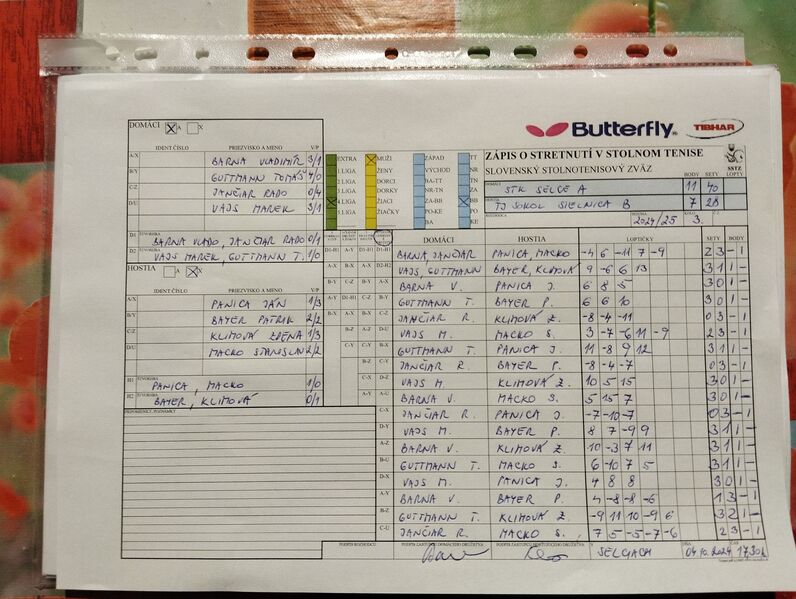 Butterfly
TIBHAR
DOMÁCI A X
IDENT ČÍSLO PRIEZVISKO A MENO V/P
A/X BARNA VLADIMÍR 3/1
B/Y GUTTMANN TOMÁŠ 4/0
C/Z JANČIAR RADO 0/4
D/U VAJS MAREK 3/1
D1 BARNA VLADO, JANČIAR RADO 0/1
D2 VAJS MAREK, GUTTMANN T. 1/0
HOSTIA A X
IDENT ČÍSLO PRIEZVISKO A MENO V/P
A/X PANICA JÁN 1/3
B/Y BAYER PATRIK 2/2
C/Z KLIMOVÁ 1/3
D/U MACKO STANISLAV 2/2
H1 PANICA, MACKO 1/0
H2 BAYER, KLIMOVÁ 0/1
PRIPOMIENKY, POZNÁMKY
EXTRA MUŽI ZÁPAD TT
1.LIGA ŽENY VÝCHOD NR
2.LIGA DORCI. BA-TT TN
3.LIGA DORKY NR-TN ZA
4.LIGA ŽIACI ZA-BB BB
5.LIGA ŽIAČKY PO-KE PO
BA KE
ZÁPIS O STRETNUTÍ V STOLNOM TENISE
SLOVENSKÝ STOLNOTENISOVÝ ZVÄZ
SSTZ
BODY SETY LOPTY
DOMÁCI STK SELCE A 11 40
HOSTIA TJ SOKOL SIELNICA B 7 28
ROZHODCA SEZÓNA 2024/25 3.
DOMÁCI HOSTIA LOPTIČKY SETY BODY
BARNA, JANČIAR PANICA, MACKO -4 6 -11 7 -9 2 3 - 1
VAJS, GUTTMANN BAYER, KLIMOVÁ 9 -6 6 13 3 1 1 -
BARNA V. PANICA J. 6 8 5 3 0 1 -
GUTTMANN T. BAYER P. 6 6 10 3 0 1 -
JANČIAR R. KLIMOVÁ Ž. -8 -4 -11 0 3 - 1
VAJS M. MACKO S. 3 -7 -6 11 -9 2 3 - 1
GUTTMANN T. PANICA J. 11 -8 9 12 3 1 1 -
JANČIAR R. BAYER P. -8 -4 -7 0 3 - 1
VAJS M. KLIMOVÁ Ž. 10 5 15 3 0 1 -
BARNA V. MACKO S. 5 15 7 3 0 1 -
JANČIAR R. PANICA J. -7 -10 -7 0 3 - 1
VAJS M. BAYER P. 8 7 -9 9 3 1 1 -
BARNA V. KLIMOVÁ Ž. 10 -3 7 11 3 1 1 -
GUTTMANN T. MACKO S. 6 -10 7 5 3 1 1 -
VAJS M. PANICA J. 4 8 8 3 0 1 -
BARNA V. BAYER P. 4 -8 -8 -6 1 3 - 1
GUTTMANN T. KLIMOVÁ Ž. -9 11 10 -9 6 3 2 1 -
JANČIAR R. MACKO S. 7 5 -5 -7 -6 2 3 - 1
PODPIS ROZHODCU PODPIS ZÁSTUPCU DOMÁCEHO DRUŽSTVA PODPIS ZÁSTUPCU HOSŤUJÚCEHO DRUŽSTVA V SELCIACH DŇA 04.10.2024 ČAS 17.30h